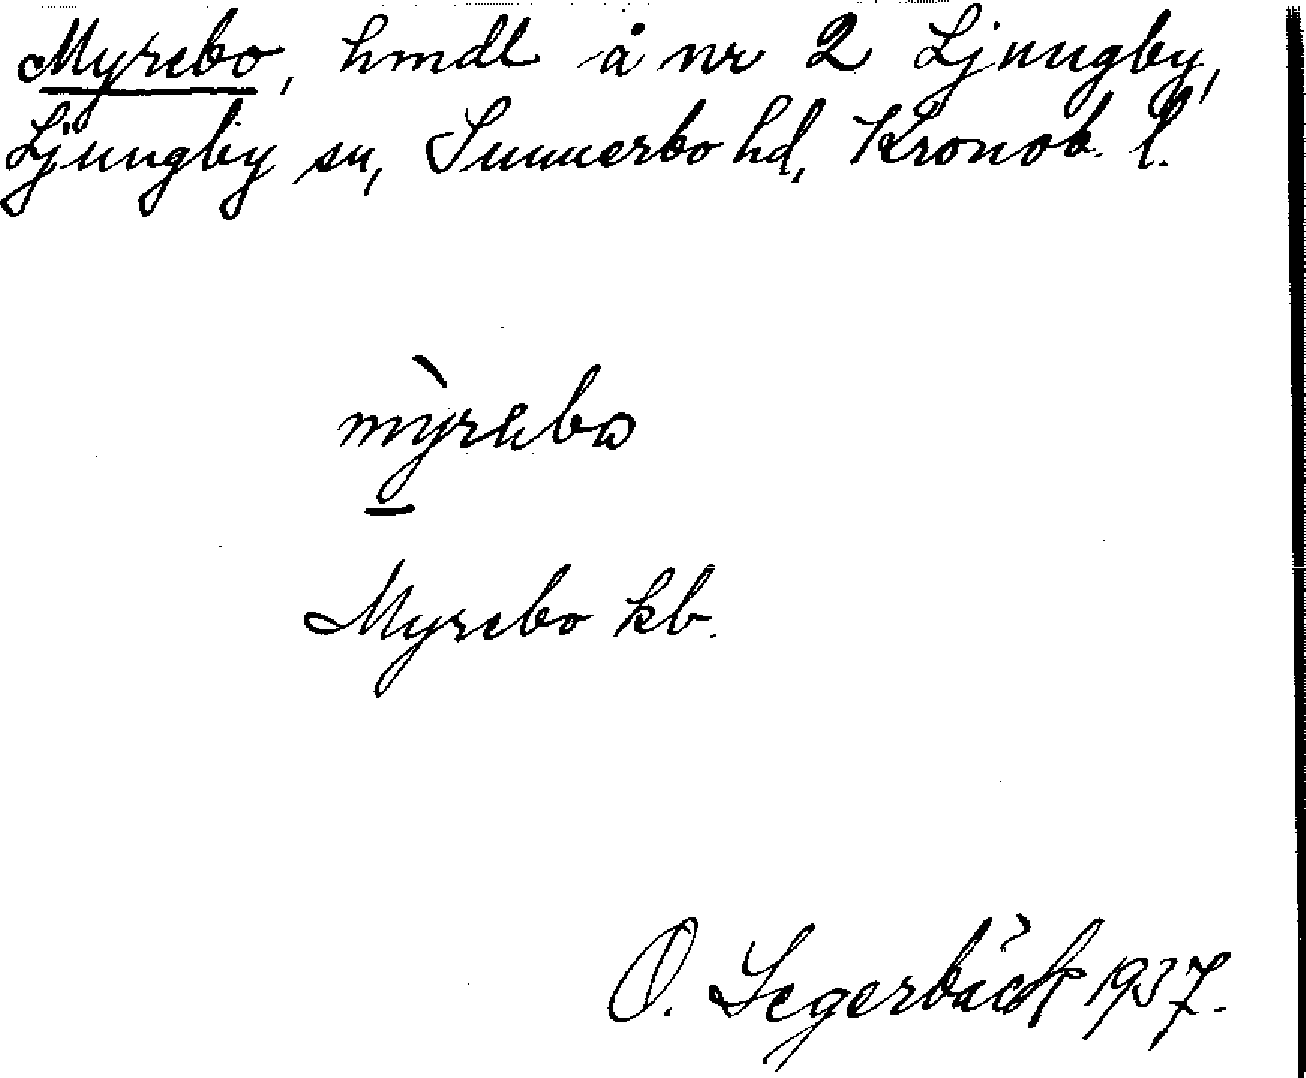 Myrebo, hmdl å nr 2 Ljungby,
Ljungby sn, Sunnerbo hd, Kronob. l.
Myrebo kb.
O. Segerbäck 1937.